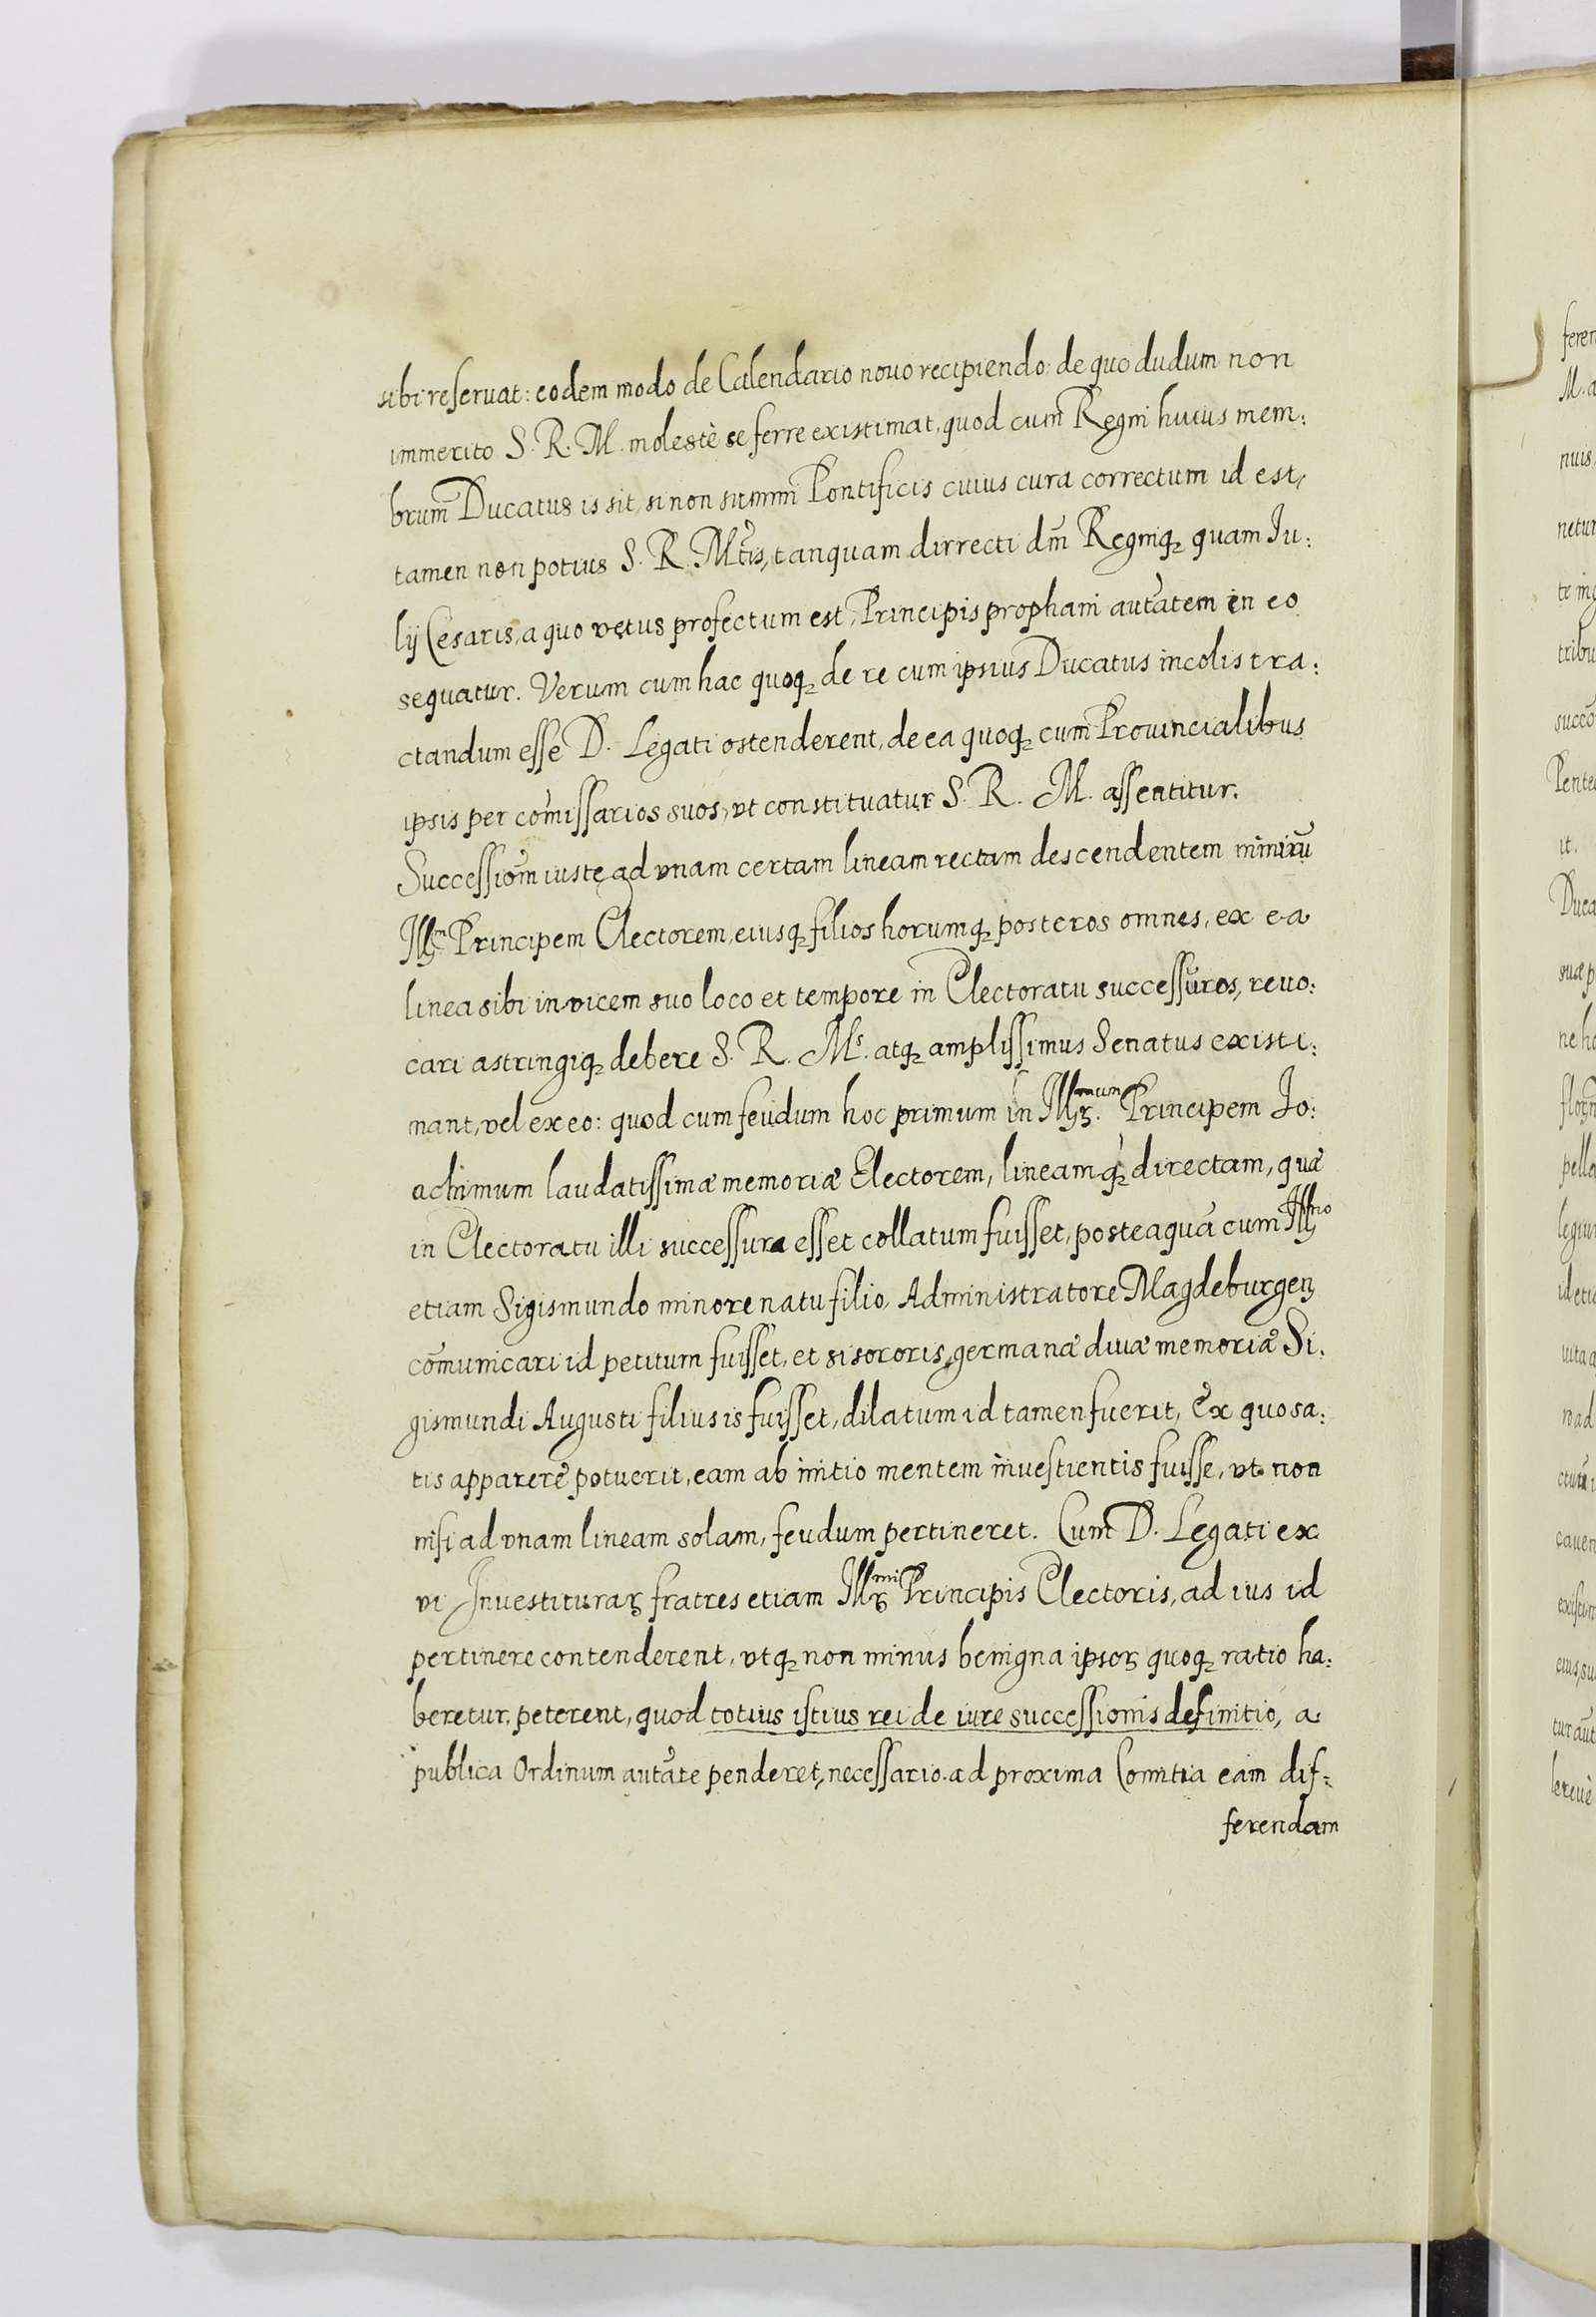 sibi reseruat: eodem modo de Calendario nouo recipiendo: de quo dudum non
immerito S. R. M. molestè se ferre existimat, quod cum Regni huius mem:
brum Ducatus is sit, si non summi Pontificis cuius cura correctum id est,
tamen non potius S. R. Mtis, tanquam dirrecti dm̃ Regniq; quam Iu:
lij Cesaris, a quo vetus profectum est, Principis prophani autãtem in eo
sequatur. Verum cum hac quoq; de re cum ipsius Ducatus incolis tra:
ctandum esse D. Legati ostenderent, de ea quoq; cum Prouincialibus
ipsis per com̃issarios suos, vt constituatur S. R. M. assentitur.
Successiõm iuste ad vnam certam lineam rectam descendentem nimirũ
Illr̃m Principem Electorem, eiusq; filios horumq; posteros omnes, ex ea
linea sibi invicem suo loco et tempore in Electoratu successuros, reuo:
cari astringiq; debere S. R. Ms. atq; amplissimus Senatus existi:
mant, vel ex eo: quod cum feudum hoc primum in Illr̃mum Principem Jo:
achimum laudatissimæ memoriæ Electorem, lineamq; directam, quæ
in Electoratu illi successura esset collatum fuisset, posteaquã cum Illr̃mo
etiam Sigismundo minore natu filio, Administratore Magdeburgen̄
com̃unicari id petitum fuisset, et si sororis, germanæ diuæ memoriæ Si:
gismundi Augusti filius is fuisset, dilatum id tamen fuerit, Ex quo sa:
tis apparere potuerit, eam ab initio mentem inuestientis fuisse, vt non
nisi ad vnam lineam solam, feudum pertineret. Cum D. Legati ex
vi Inuestituraꝝ fratres etiam Illr̃mi Principis Electoris, ad ius id
pertinere contenderent, vtq; non minus benigna ipsoꝝ quoq; ratio ha:
beretur, peterent, quod totius istius rei de iure successionis definitio, a
publica Ordinum autãte penderet, necessario ad proxima Comitia eam dif:
ferendam